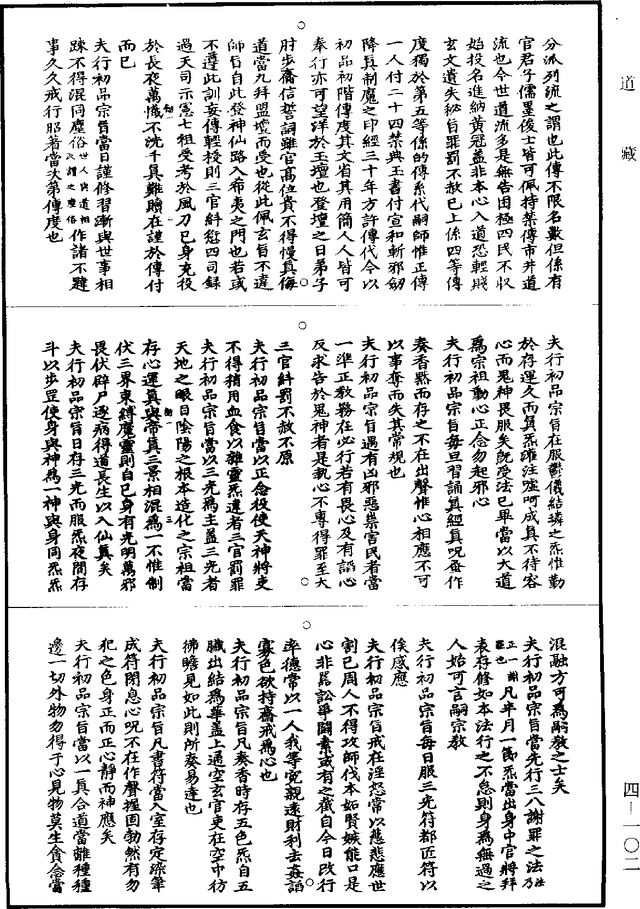 道藏
分派列流之謂也此傳不限名數但係有
官君子儒墨俊士皆可佩持禁傳市井道
流也今世道流多是無告困極四民不收
始投名進納黃冠蓋非本心入道恐輕賤
玄文遺失秘旨罪罰不赦已上係四等傳
度獨於第五等係的傳系代嗣師惟正傳
一人付二十四禁典玉書付宣和斬邪劒
降真制魔之印經三十年方許傳代今以
初品初階傳度其文省其用簡人人皆可
奉行亦可望洋於玉壇也登壇之日弟子
肘步齋信誓詞雖官髙位貴不得慢真侮
道當九拜盟壇而受也從此佩玄旨不遠
師旨自此登神仙路入希夷之門也若或
不遵此訓妄傳輕授則三官糾愆四司錄
過天司示憲七祖受考於風刀已身充役
於長夜萬懺不洗千真難贖在謹於傳付
而已
夫行初品宗旨當日謹修習漸與世事相
踈不得混同塵俗世人與道相反謂之塵俗作諸不韙
事久久戒行昭著當次第傳度也
夫行初品宗旨在服鬱儀結璘之炁惟勤
於存運久而真炁灌注噓呵成真不待容
心而鬼神畏服矣旣受法已畢當以大道
爲宗祖動心正念勿起邪心
夫行初品宗旨每旦習誦真經真呪蚤作
奏香黙而存之不在出聲惟心相應不可
以事奪而失其常規也
夫行初品宗旨遇有凶邪惡祟害民者當
一準正教務在必行若有畏心及有謟心
反求告於鬼神者是執心不專得罪至大
三官糾罰不赦不原
夫行初品宗旨當以正念役使天神將吏
不得稍用血食以雜靈炁違者三官罰罪
夫行初品宗旨當以三光爲主蓋三光者
天地之眼目陰陽之根本造化之宗祖當
存心運真與帝真三景相混爲一不惟制
伏三界束縛魔靈則自已身有光明萬邪
畏伏辟尸逐病得道長生以入仙真矣
夫行初品宗旨日存三光而服炁夜間存
斗以步罡使身與神爲一神與身同炁炁
混融方可爲嗣教之士矣
夫行初品宗旨當先行三八謝罪之法法乃
正一謝罪也凡半月一節炁當出身中官將拜
表存修如本法行之不怠則身爲無過之
人始可言嗣宗教
夫行初品宗旨每日服三光符都匠符以
俟感應
夫行初品宗旨戒在淫怨常以慈悲應世
割已周人不得攻師伐本妬賢嫉能口是
心非嚚訟爭鬪素或有之截自今日改行
率德常以一人我等寃親遠財利去姦謟
寡色欲持齋戒爲心也
夫行初品宗旨凡奏香時存五色炁自五
臟出結爲華蓋上通空玄官吏在空中彷
彿瞻見如此則所奏易達也
夫行初品宗旨凡書符當入室存定染筆
成符閉息心呪不在作聲握固勃然有勿
犯之色身正而正心靜而神應矣
夫行初品宗旨當以一真合道當離種種
邊一切外物勿得于心見物莫生貪念當
四—一〇二